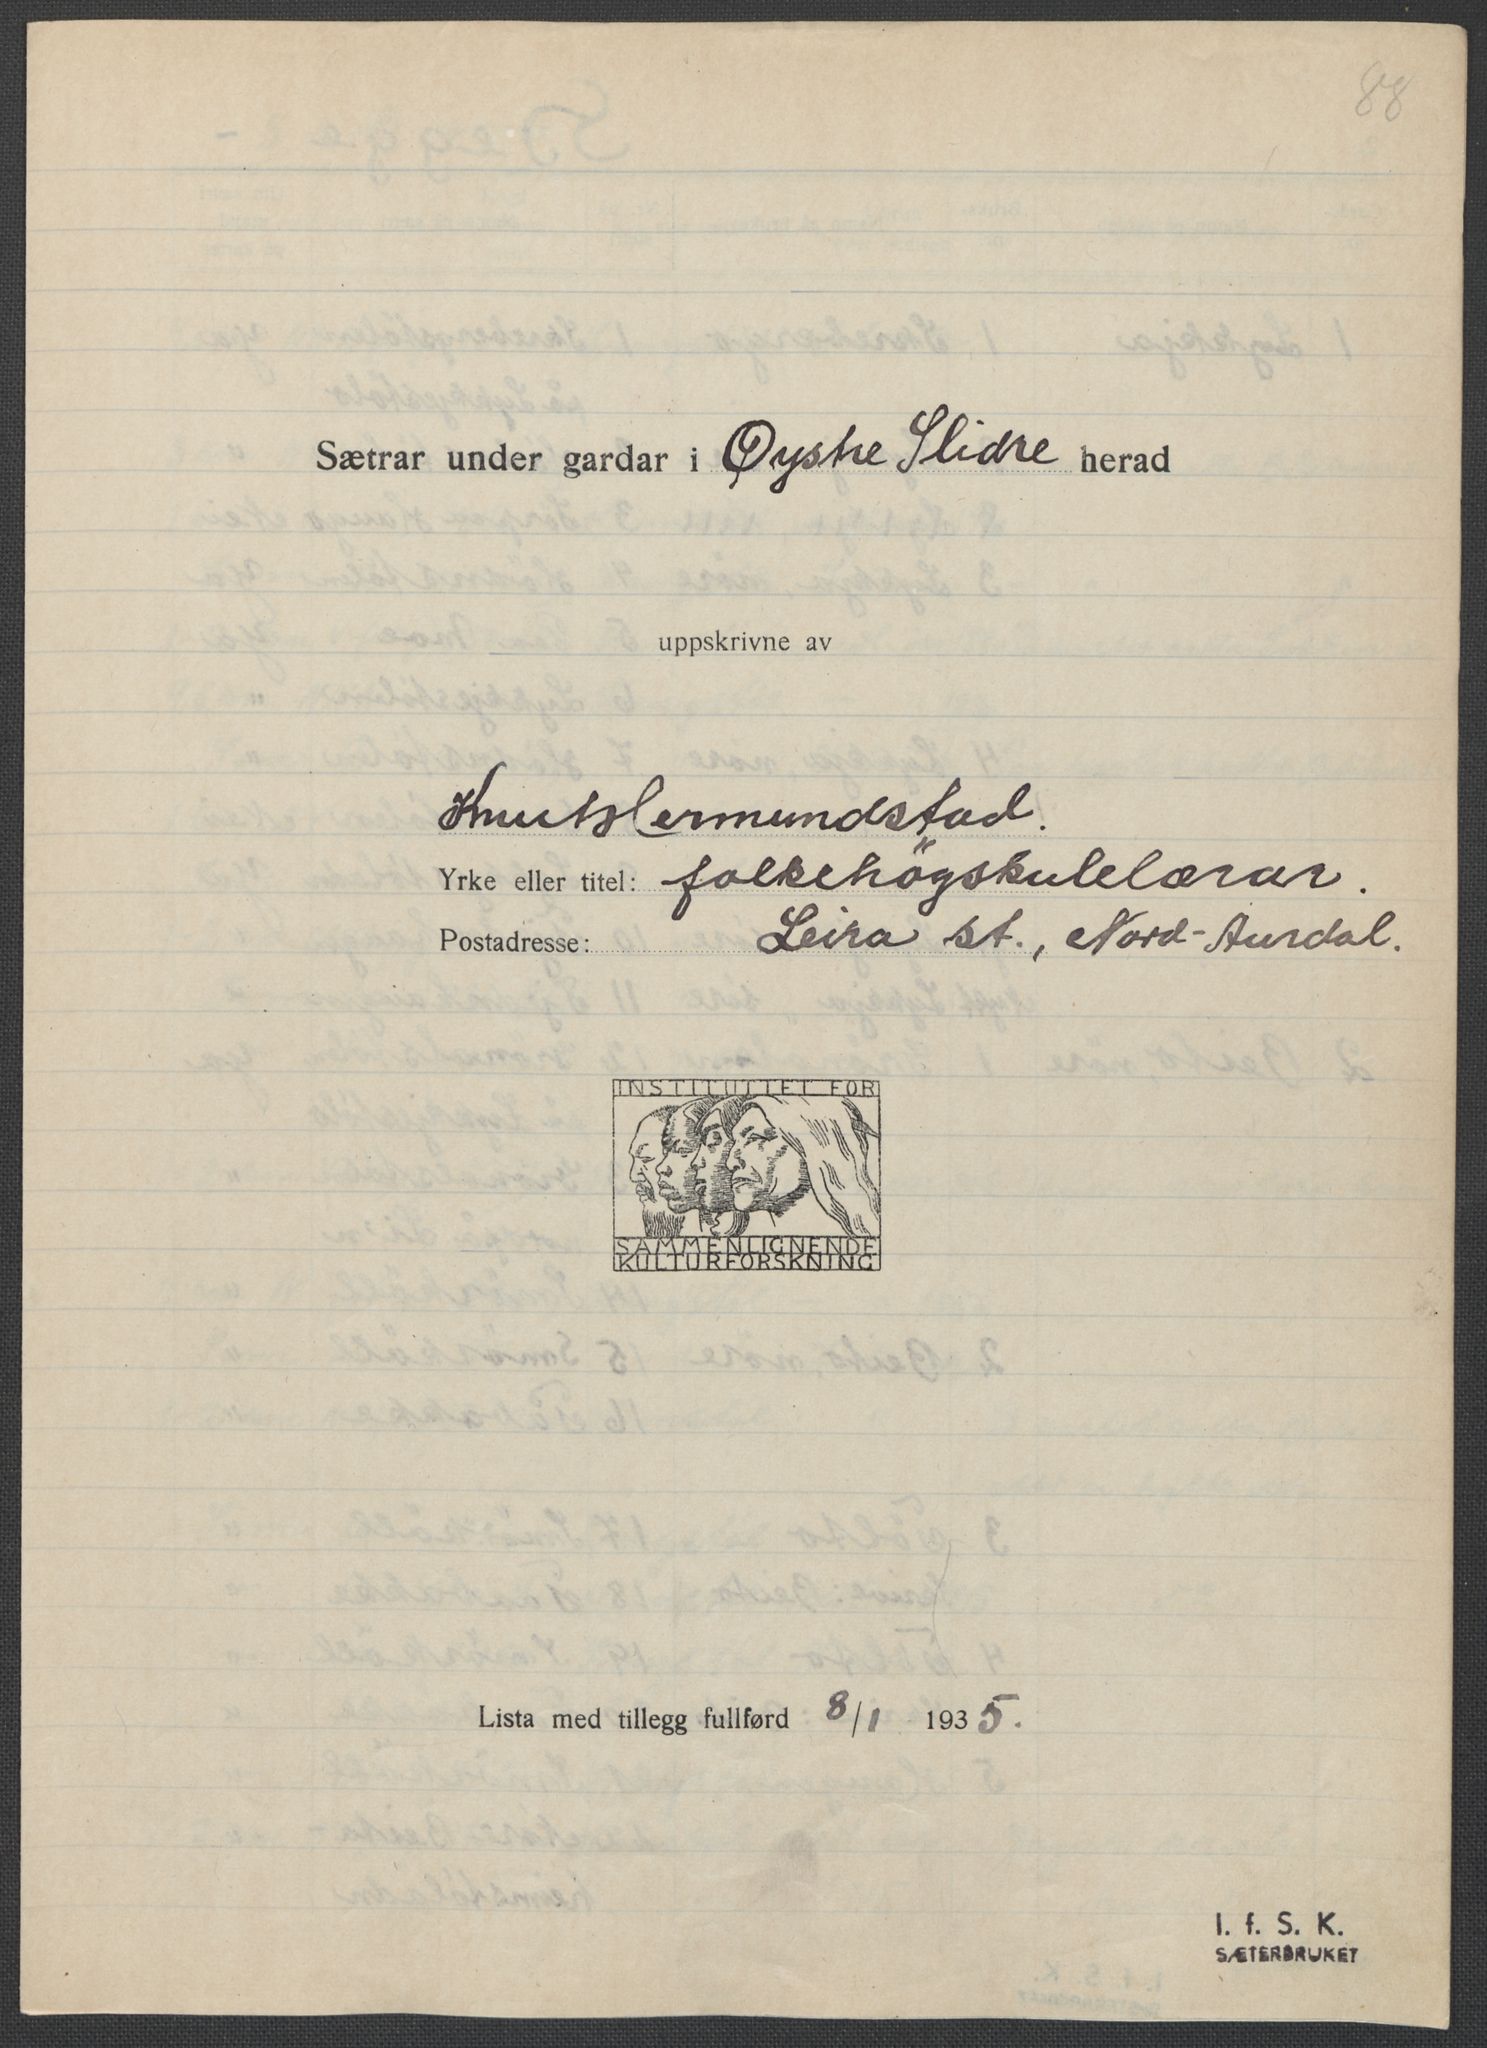 88
Sætrar under gardar i Øystre Slidre herad
uppskrivne av
Knut Hermundstad.
Yrke eller titel: folkehögskulelærar.
Postadresse: Leira st., Nord-Aurdal.
INSTITUTTET FOR
SAMMENLIGNENDE
KULTURFORSKNING
Lista med tillegg fullførd 8/1 1935.
I. f. S. K.
SÆTERBRUKET